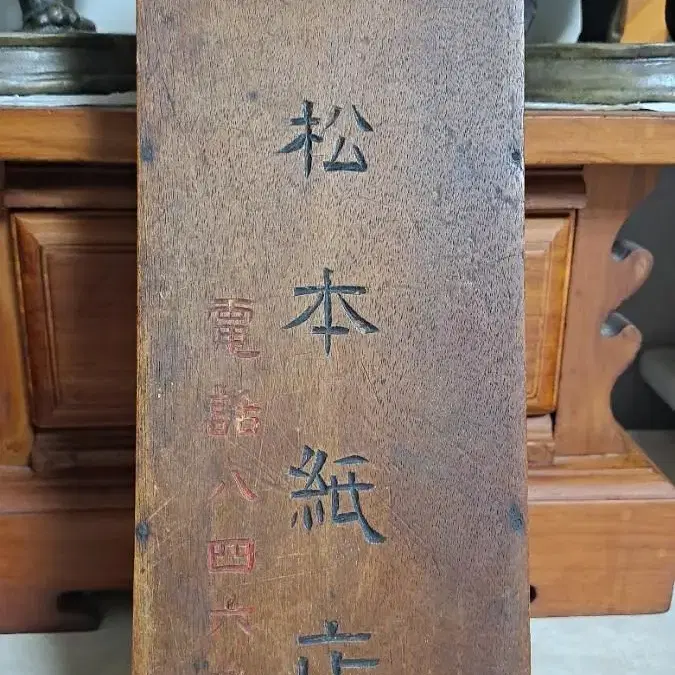 松本紙店
電話八四六